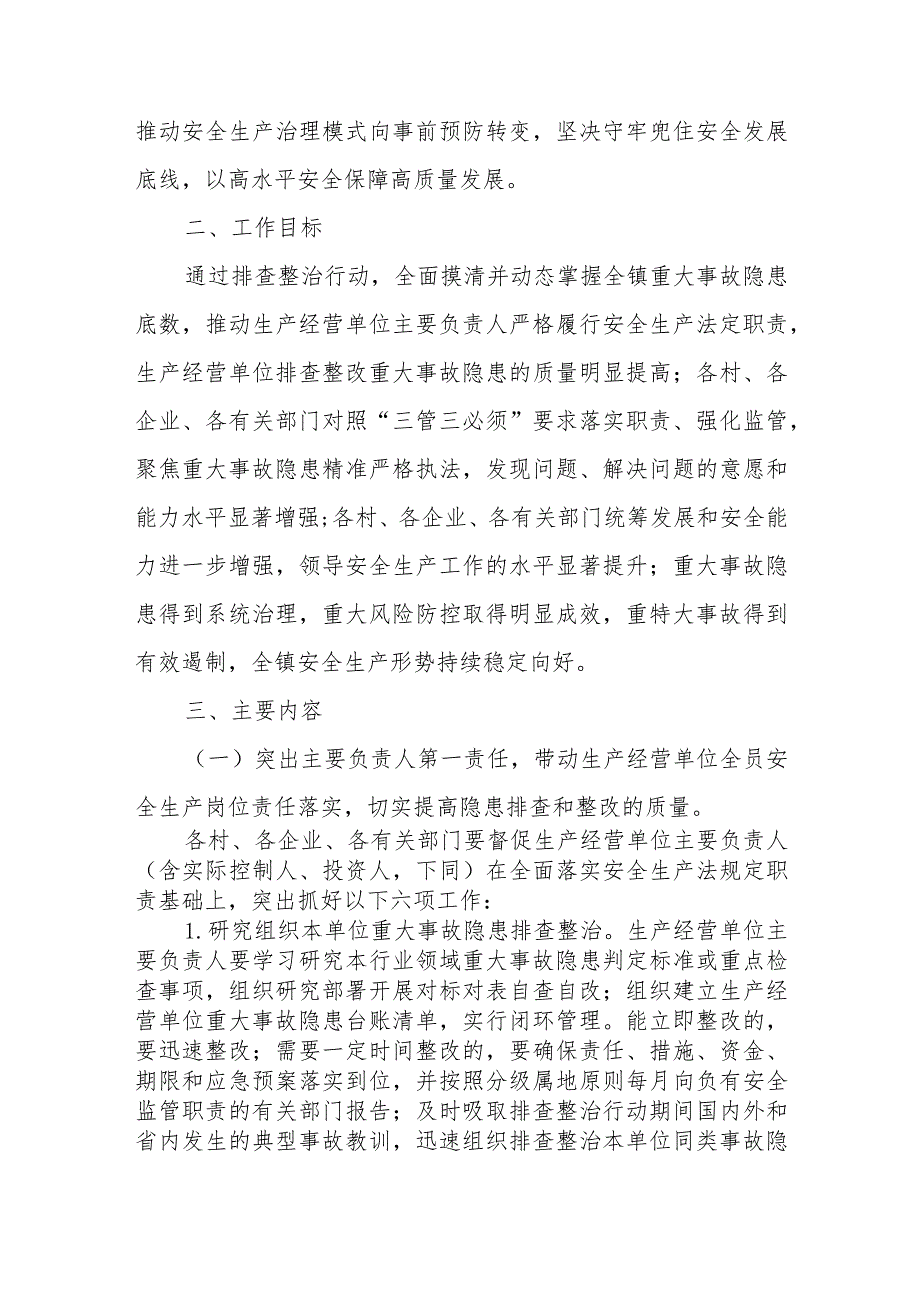 推动安全生产治理模式向事前预防转变，坚决守牢兜住安全发展
底线，以高水平安全保障高质量发展。
二、工作目标
通过排查整治行动，全面摸清并动态掌握全镇重大事故隐患
底数，推动生产经营单位主要负责人严格履行安全生产法定职责，
生产经营单位排查整改重大事故隐患的质量明显提高；各村、各
企业、各有关部门对照“三管三必须”要求落实职责、强化监管，
聚焦重大事故隐患精准严格执法，发现问题、解决问题的意愿和
能力水平显著增强;各村、各企业、各有关部门统筹发展和安全能
力进一步增强，领导安全生产工作的水平显著提升；重大事故隐
患得到系统治理，重大风险防控取得明显成效，重特大事故得到
有效遏制，全镇安全生产形势持续稳定向好。
三、主要内容
（一）突出主要负责人第一责任，带动生产经营单位全员安
全生产岗位责任落实，切实提高隐患排查和整改的质量。
各村、各企业、各有关部门要督促生产经营单位主要负责人
（含实际控制人、投资人，下同）在全面落实安全生产法规定职
责基础上，突出抓好以下六项工作：
1.研究组织本单位重大事故隐患排查整治。生产经营单位主
要负责人要学习研究本行业领域重大事故隐患判定标准或重点检
查事项，组织研究部署开展对标对表自查自改；组织建立生产经
营单位重大事故隐患台账清单，实行闭环管理。能立即整改的，
要迅速整改；需要一定时间整改的，要确保责任、措施、资金、
期限和应急预案落实到位，并按照分级属地原则每月向负有安全
监管职责的有关部门报告；及时吸取排查整治行动期间国内外和
省内发生的典型事故教训，迅速组织排查整治本单位同类事故隐